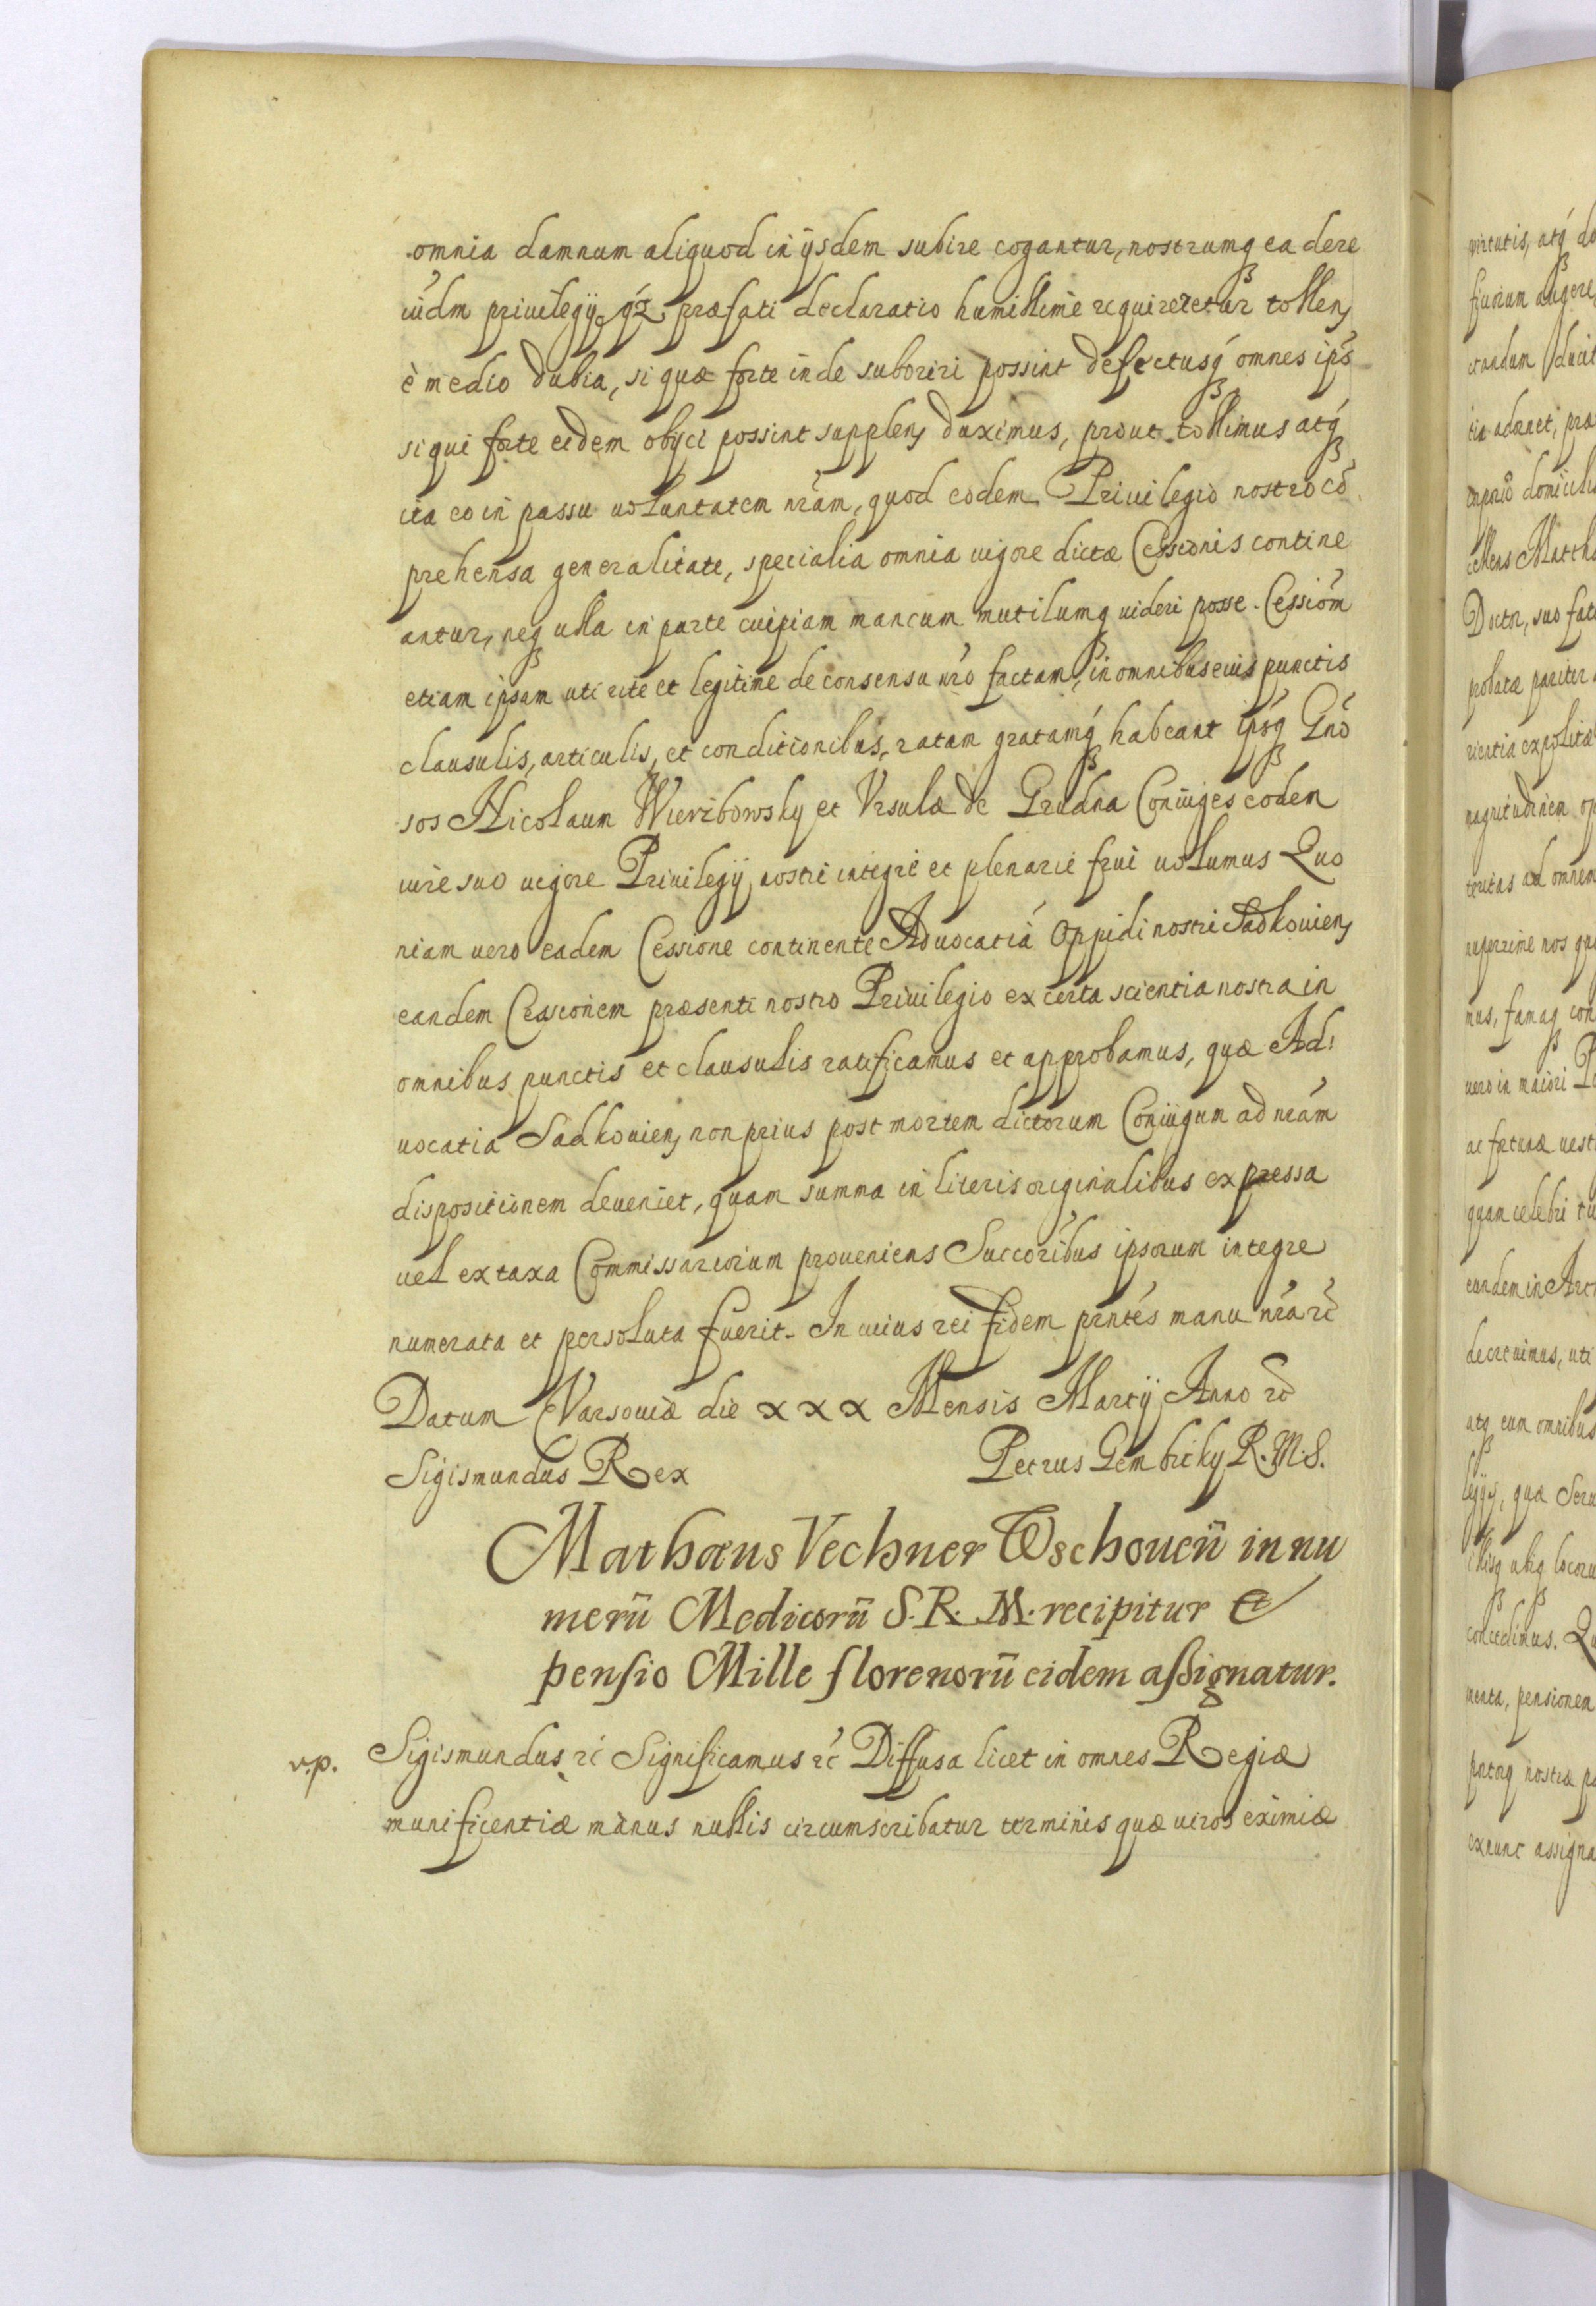 omnia damnum aliquod in ijsdem subire cogantur, nostrumq ea de re
iúdm priuilegij, præfati declaratio humillime requireretur tollen,
è medio dubia, si quæ forte inde suboriri possint defectusq́ omnes ip̃s
si qui forte eidem obijci possint supplen, duximus, prout tollimus atq́
ita eo in passu uoluntatem nr̃am, quod eodem Priuilegio nostro cõ
prehensa generalitate, specialia omnia uigore dictæ Cessionis contine
antur, neq ulla in parte cuipiam mancum mutilumq uideri posse. Cessiõm
etiam ipsam uti rite et legitime de consensu nr̃o factam, in omnibus eius punctis
clausulis, articulis, et conditionibus, ratam gratamq́ habeant ipsq́ Gnõ
sos Nicolaum Wierzbowsky et Vrsulã de Grudna Coniuges eodem
iure suo uigore Priuilegij nostri integre et plenarie frui uolumus Quo
niam uero eadem Cessione continente Aduocatiã Oppidi nostri Sadkouien,
eandem Cessionem præsenti nostro Priuilegio ex certa scientia nostra in
omnibus punctis et clausulis ratificamus et approbamus, quæ Ad:
uocatia Sadkouien, non prius post mortem dictorum Coniugum ad nr̃am
dispositionem deueniet, quam summa in literis originalibus expressa
uel ex taxa Commissariorum proueniens Succoribus ipsorum integre
numerata et persoluta fuerit. In cuius rei fidem pnt̃es manu nr̃a rc̃
Datum Varsouiæ die xxx Mensis Martij Anno rc̃
Sigismundus Rex Petrus Gembicky R. M. S.
Mathæus Vechner Wschoueñ in nu
merũ Medicorũ S. R. M. recipitur et
pensio Mille florenorũ eidem assignatur.
v.p. Sigismundus rc̃ Significamus rc̃ Diffusa licet in omnes Regiæ
munificentiæ manus nullis circumscribatur terminis quæ uiros eximiæ
virtutis, atq́
augere
ducit
adornet,
domicili
Matth
Doctor, suo
probatæ pariter
rientia expolitæ
magnitudinem
ad omnem
nos
mus, famaq con
uero in maiori
quam celebri
eundem in
decreuimus, uti
atq cum omnibus
quæ
ubiq locoru
concedimus.
menta, pensionem
nostræ
ex nunc assigna